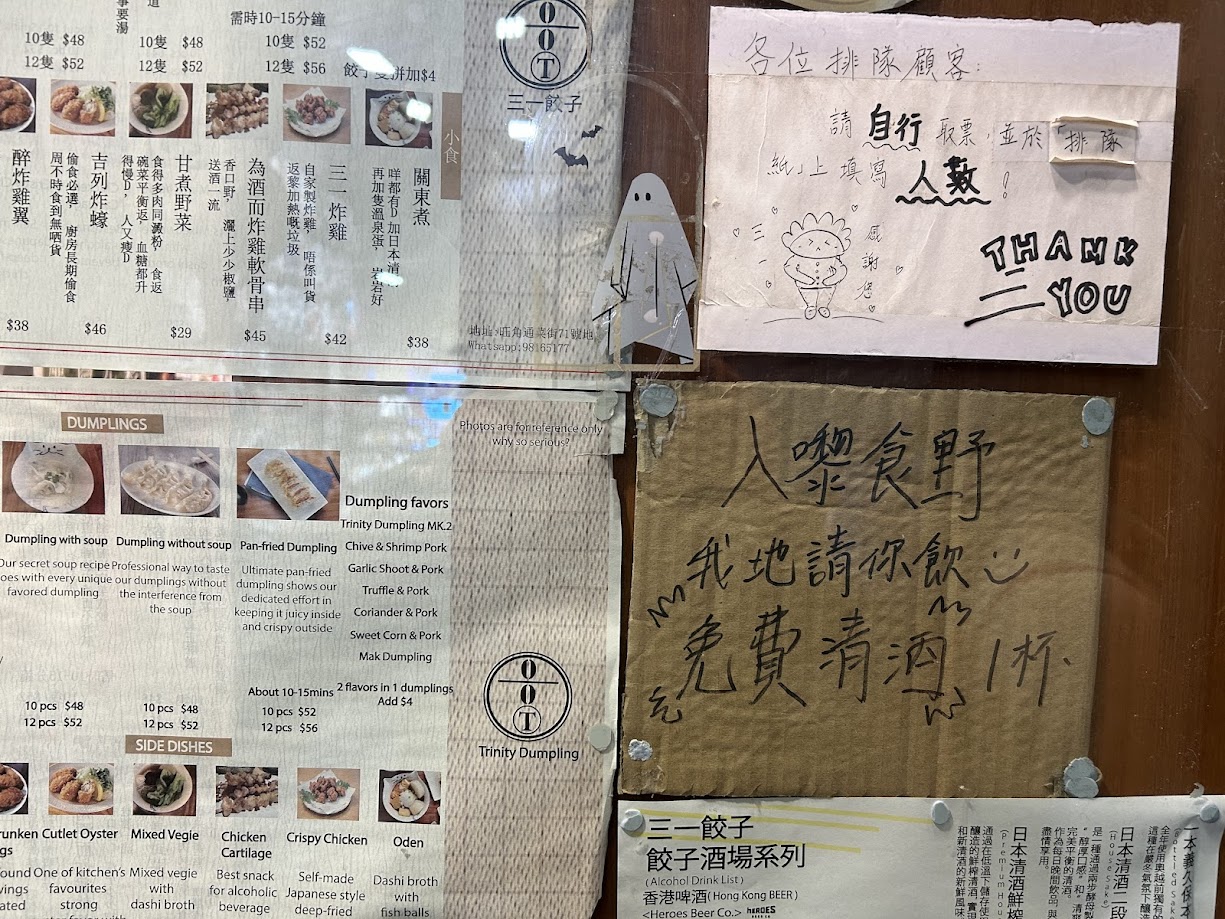 事要湯
需時10-15分鐘
10隻 $48
12隻 $52
10隻 $48
12隻 $52
10隻 $52
12隻 $56
餃子雙拼加$4
三一餃子
小食
關東煮
咩都有D 加日本清
再加隻溫泉蛋，岩岩好
$38
三一炸雞
自家製炸雞，唔係叫貨
返黎加熱嘅垃圾
$42
為酒而炸雞軟骨串
香口野，灑上少少椒鹽，
送酒一流
$45
甘煮野菜
食得多肉同澱粉，食返
碗菜平衡返，血糖都升
得慢D，人又瘦D
$29
吉列炸蠔
偷食必選，廚房長期偷食
周不時食到無哂貨
$46
醉炸雞翼
$38
地址:旺角通菜街71號地
Whatsapp:98165177
各位排隊顧客:
請自行取票，並於「排隊
紙」上填寫人數！
三一
感謝您
THANK
YOU
DUMPLINGS
Photos are for reference only
why so serious?
Dumpling with soup
Our secret soup recipe
goes with every unique
favored dumpling
10 pcs $48
12 pcs $52
Dumpling without soup
Professional way to taste
our dumplings without
the interference from
the soup
10 pcs $48
12 pcs $52
Pan-fried Dumpling
Ultimate pan-fried
dumpling shows our
dedicated effort in
keeping it juicy inside
and crispy outside
About 10-15mins
10 pcs $52
12 pcs $56
Dumpling favors
Trinity Dumpling MK.2
Chive & Shrimp Pork
Garlic Shoot & Pork
Truffle & Pork
Coriander & Pork
Sweet Corn & Pork
Mak Dumpling
2 flavors in 1 dumplings
Add $4
Trinity Dumpling
SIDE DISHES
Cutlet Oyster
One of kitchen's
favourites
strong
Mixed Vegie
Mixed vegie
with
dashi broth
Chicken
Cartilage
Best snack
for alcoholic
beverage
Crispy Chicken
Self-made
Japanese style
deep-fried
Oden
Dashi broth
with
fish balls
入嚟食野
我地請你飲
免費清酒1杯.
三一餃子
餃子酒場系列
(Alcohol Drink List)
香港啤酒(Hong Kong BEER)
<Heroes Beer Co.> HEROES
日本清酒二段
(House Sake)
是一種通過兩步酵母製
"醇厚口感"和"清
完美平衡的清酒。
作為每日晚間飲品，與
盡情享用。
日本清酒鮮榨
通過在低溫下儲存使
釀造的鮮榨清酒，實現
和新清酒的新鮮風味